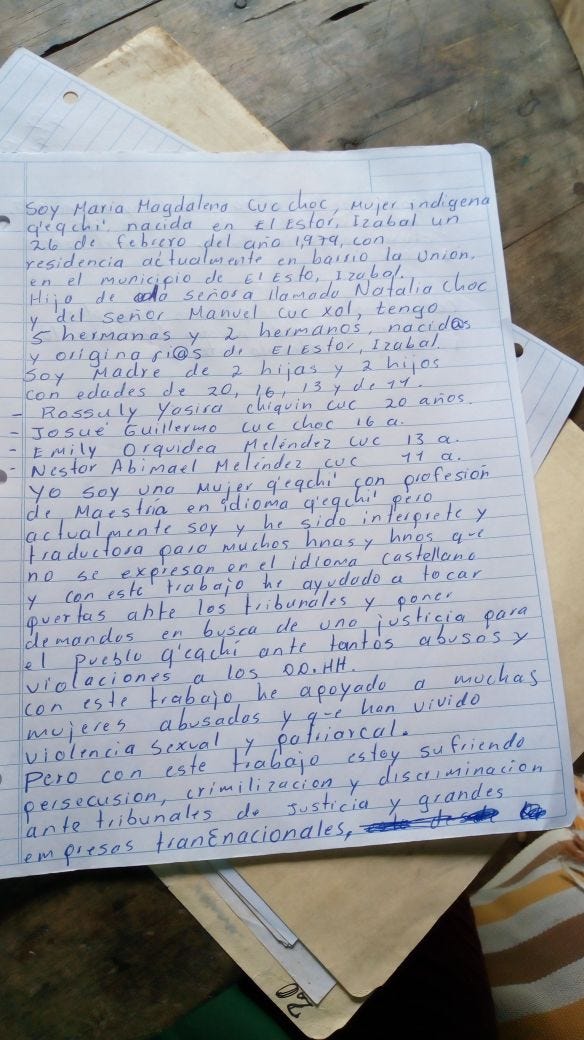 Soy Maria Magdalena Cuc choc, Mujer indigena
q'eqchi', nacida en El Estor, Izabal un
26 de febrero del año 1,979, con
residencia actualmente en barrio la Union,
en el municicio de El Esto, Izabal.
Hija de la señora llamada Natalia choc
y del señor Manuel Cuc xol, tengo
5 hermanas y 2 hermanos, nacid@s
y originari@s de El Estor, Izabal.
Soy Madre de 2 hijas y 2 hijos
con edades de 20, 16, 13 y de 11.
- Rossuly Yasira chiquin cuc 20 años.
- Josué Guillermo cuc choc 16 a.
- Emily Orquidea Meléndez cuc 13 a.
- Nestor Abimael Meléndez cuc 11 a.
Yo soy una Mujer q'eqchi' con profesión
de Maestria en idioma q'eqchi' pero
actualmente soy y he sido interprete y
traductora para muchos hnas y hnos que
no se expresan en el idioma castellano
y con este trabajo he ayudado a tocar
puertas ante los tribunales y poner
demandas en busca de una justicia para
el pueblo q'eqchi ante tantos abusos y
violaciones a los DD.HH.
con este trabajo he apoyado a muchas
mujeres abusadas y que han vivido
violencia sexual y patriarcal.
Pero con este trabajo estoy sufriendo
persecusion, crimilizacion y discriminacion
ante tribunales de Justicia y grandes
empresas transnacionales,
200